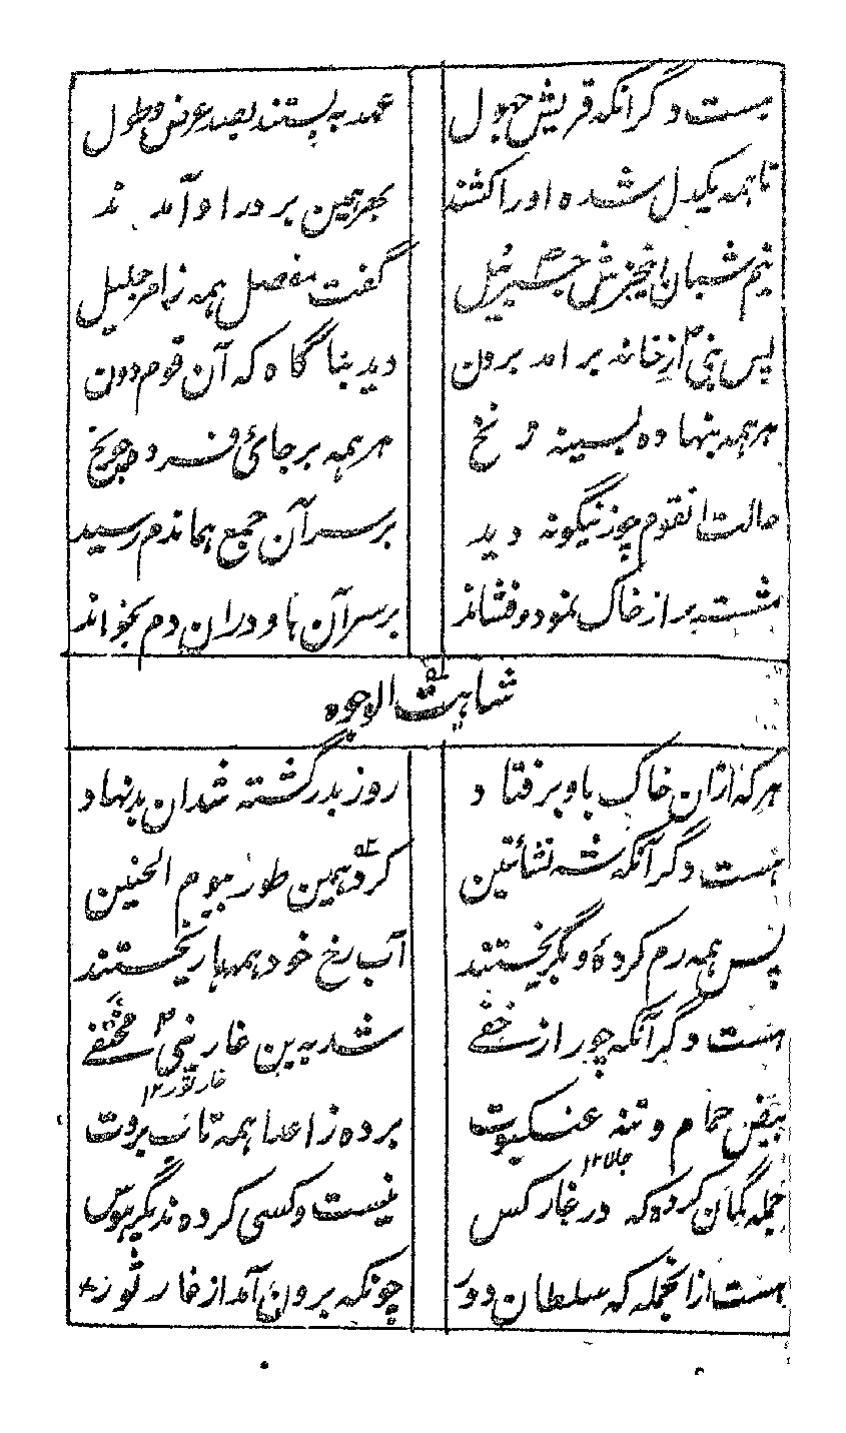 هست دگر آنکه قریش جهول عهد به بستند بصد عرض و طول
تا همه یکدل شده او را کشند بهر همین بر در او آمدند
نیم شبان انگیزش جبرئیل گفت مفصل همه ز امر جلیل
پس نبی از خانه بر امد برون دید بناگاه که آن قوم دون
هر همه بنهاده بسینه زنخ هر همه بر جائ فسرده چو یخ
حالت انقوم چو زینگونه دید بر سر آن جمع هماندم رسید
مشت پر از خاک نمود و فشاند بر سر آن ها و دران دم بخواند
شاهت الوجوه
هر که ازان خاک باو بر فتاد روز بد گشته شدان بد نهاد
هست دگر آنکه شه نشأتین کرد همین طور بیوم الحنین
پس همه رم کرده و بگریختند آب رخ خود همه ها ریختند
هست دگر آنکه چو راز خفے شد به بن غار نبی مختفے
غار ثور ۱۲
بیض حمام و تنه عنکبوت برده ز اعدا همه تاب بروت
جالا ۱۲
جمله گمان کرده که در غار کس نیست و کسی کرده ندیگر هوس
هست ازانجمله که سلطان دور چونکه برون آمد از غار ثور